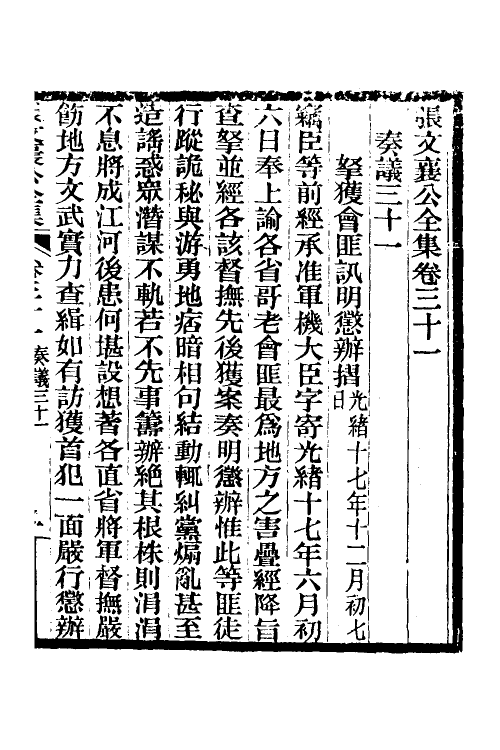 張文襄公全集卷三十一
奏議三十一
拏獲會匪訊明懲辦摺光緒十七年十二月初七日
竊臣等前經承准軍機大臣字寄光緒十七年六月初
六日奉上諭各省哥老會匪最為地方之害疊經降旨
查拏並經各該督撫先後獲案奏明懲辦惟此等匪徒
行蹤詭秘與游勇地痞暗相句結動輒糾黨煽亂甚至
造謠惑眾潛謀不軌若不先事籌辦絕其根株則涓涓
不息將成江河後患何堪設想著各直省將軍督撫嚴
飭地方文武實力查緝如有訪獲首犯一面嚴行懲辦
奏議三十一